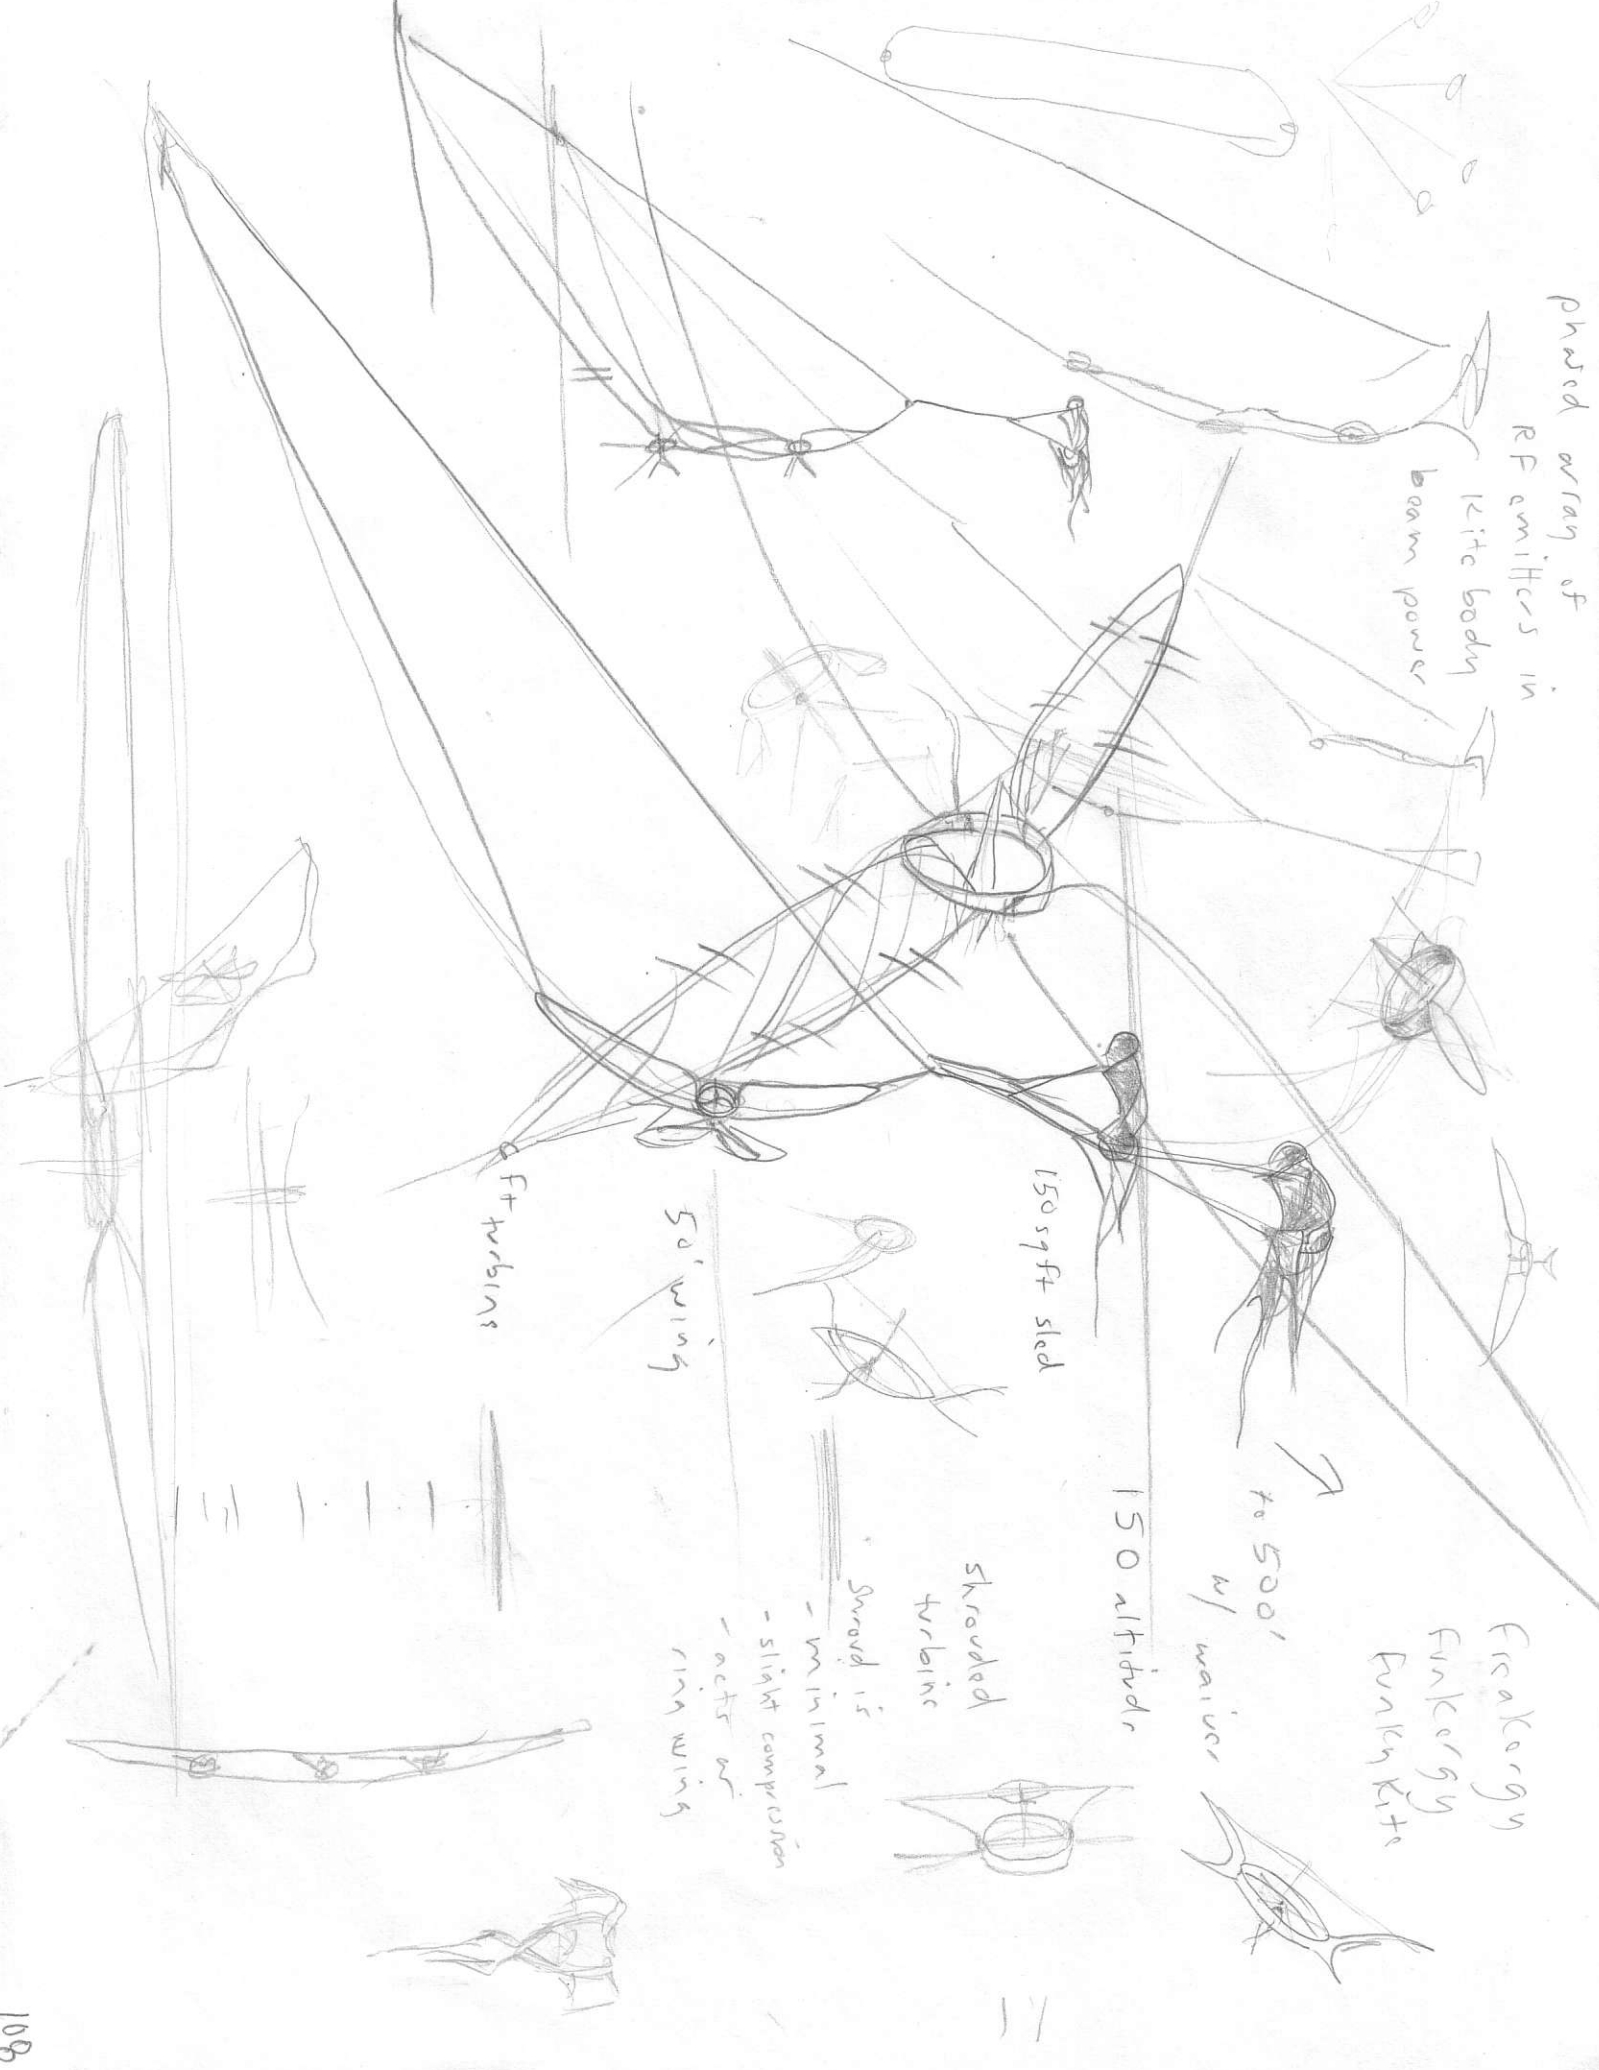 phased array of
RF emitters in
kite body
beam power
Freakergy
Funkergy
Funky Kite
to 500'
w/ waiver
150 altitude
150 sq ft sled
shrouded
turbine
shroud is
- minimal
- slight compression
- acts as
ring wing
50' wing
ft turbine
108